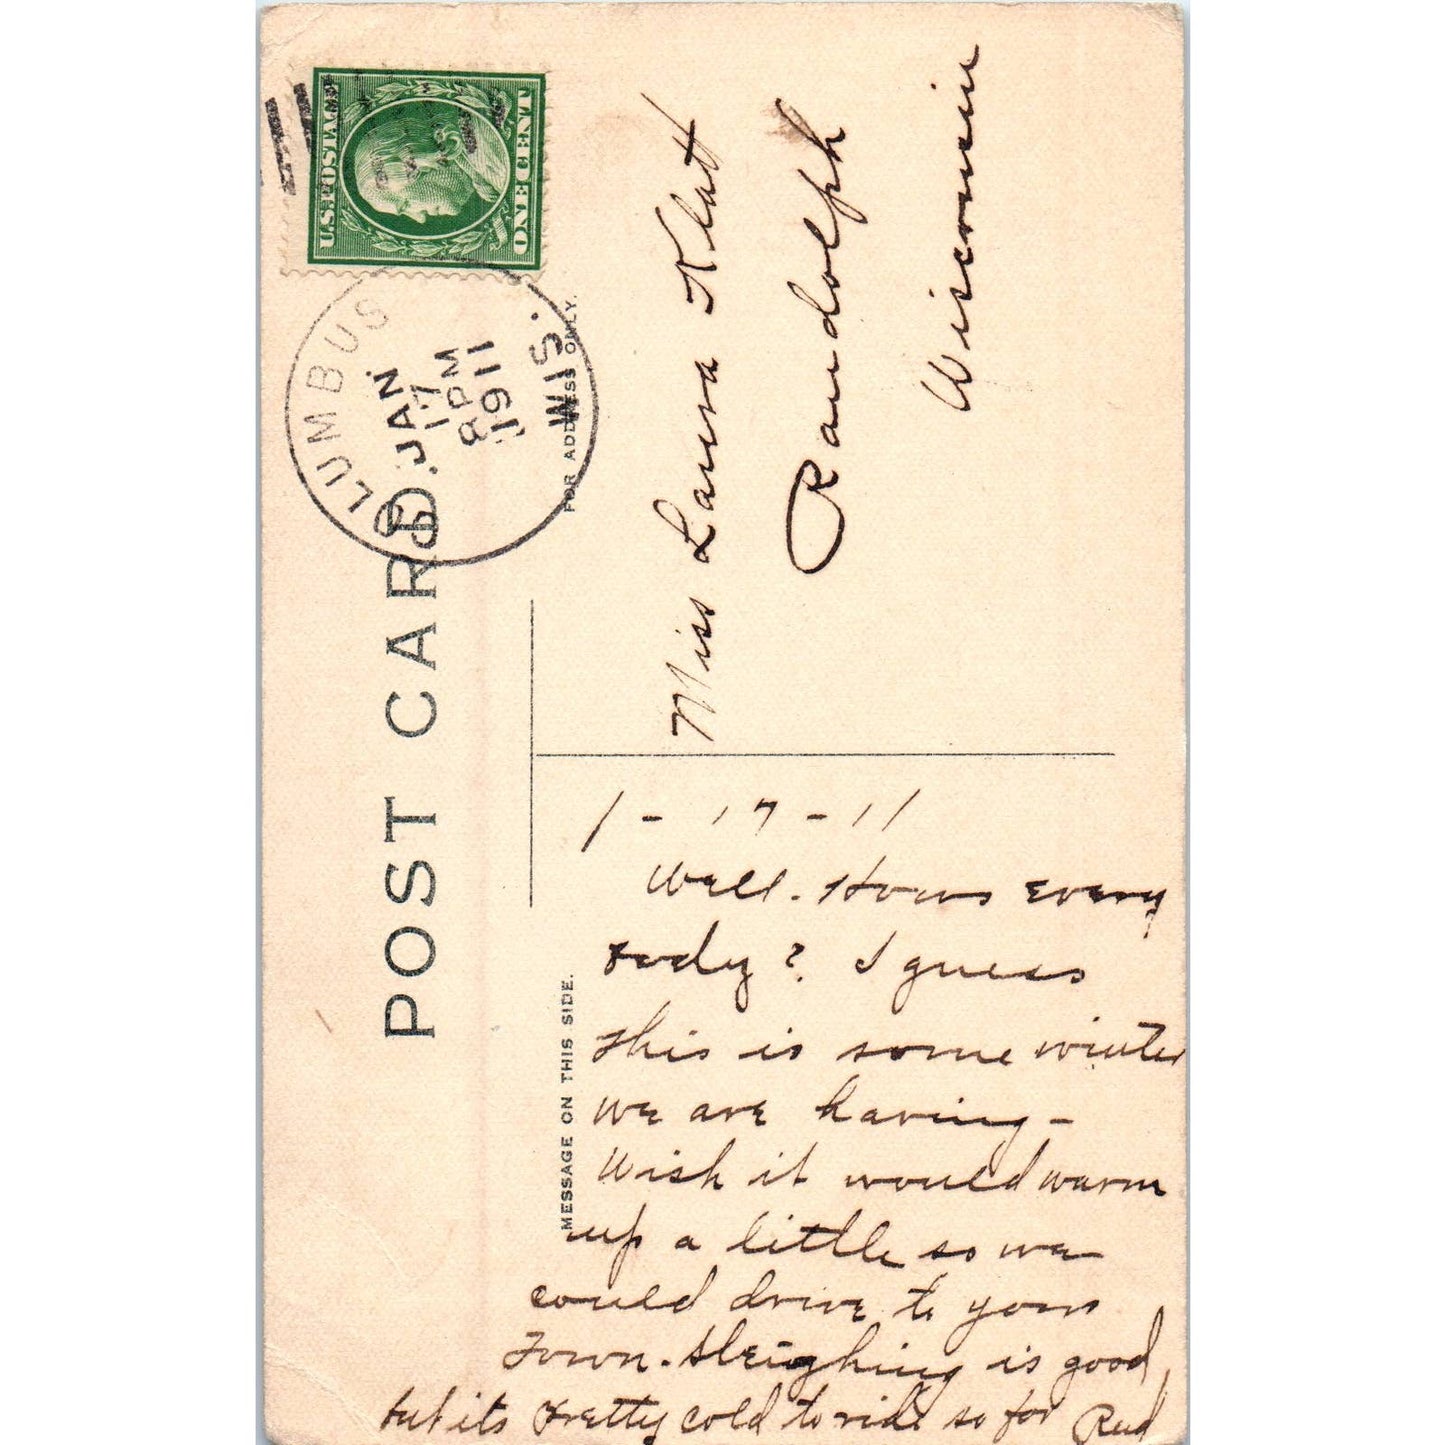 U.S. POSTAGE
ONE CENT
COLUMBUS
WIS.
JAN.
17
8 PM
1911
POST CARD.
FOR ADDRESS ONLY.
Miss Laura Klatt
Randolph
Wisconsin
MESSAGE ON THIS SIDE.
1 - 17 - 11
Well. Hows every
body? I guess
this is some winter
we are having -
Wish it would warm
up a little so we
could drive to your
Town. Sleighing is good
but its pretty cold to ride so far Rud